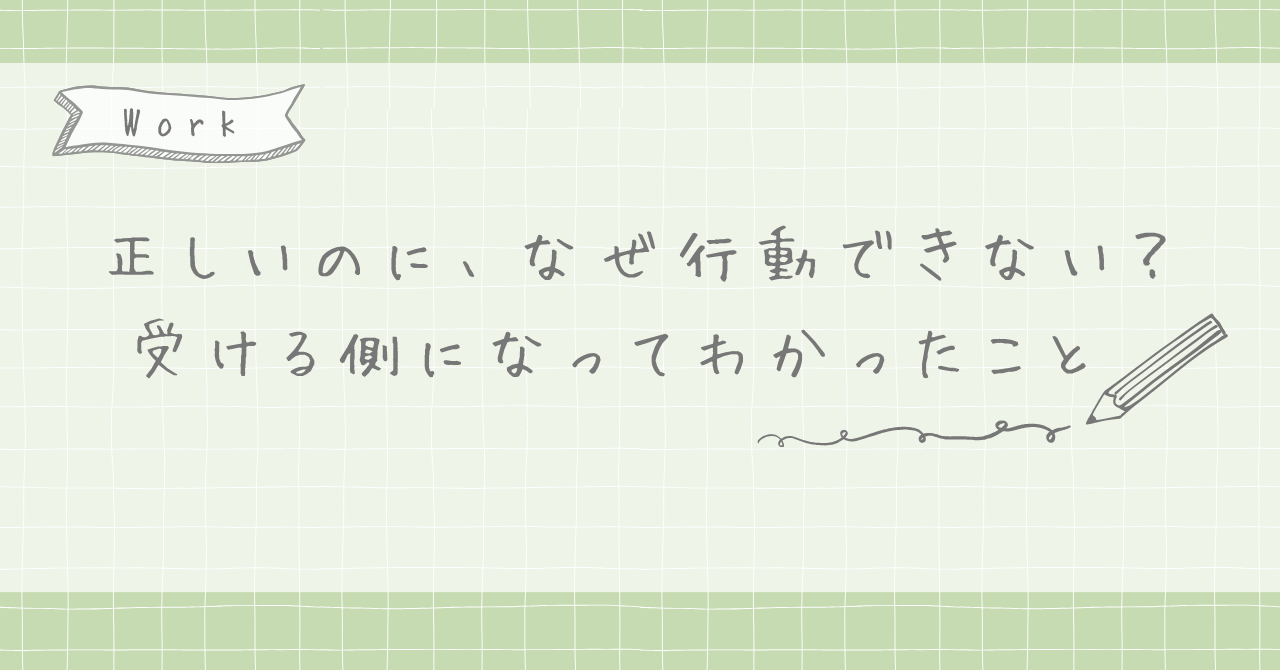 Work
正しいのに、なぜ行動できない？
受ける側になってわかったこと